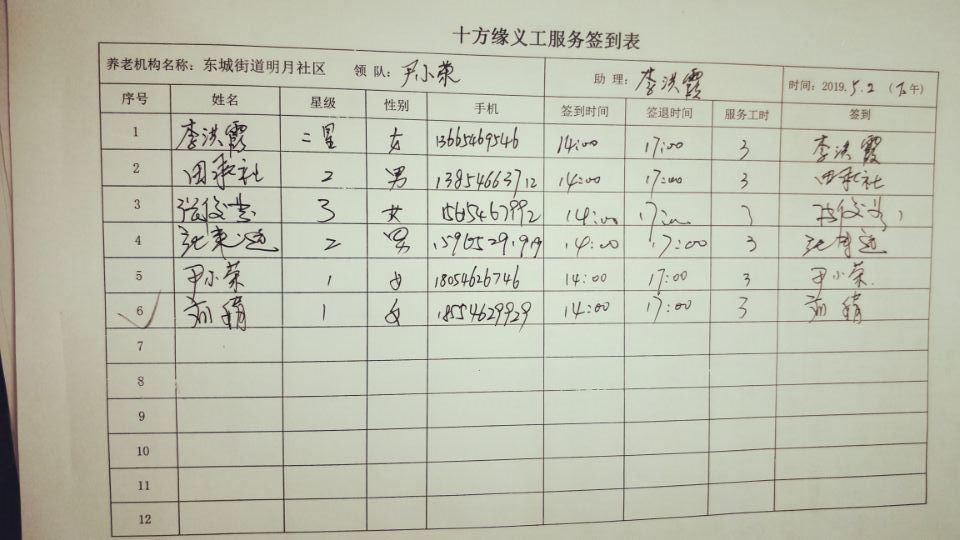 十方缘义工服务签到表
养老机构名称：东城街道明月社区 领 队：尹小荣 助 理：李洪霞 时间：2019.5.2（下午）
序号 姓名 星级 性别 手机 签到时间 签退时间 服务工时 签到
1 李洪霞 二星 女 13665469546 14:00 17:00 3 李洪霞
2 田承社 2 男 13854663712 14:00 17:00 3 田承社
3 3 女 14:00 17:00 3
4 2 男 14:00 17:00 3
5 尹小荣 1 女 18054626746 14:00 17:00 3 尹小荣
6 刘精 1 女 18554629929 14:00 17:00 3 刘精
7
8
9
10
11
12